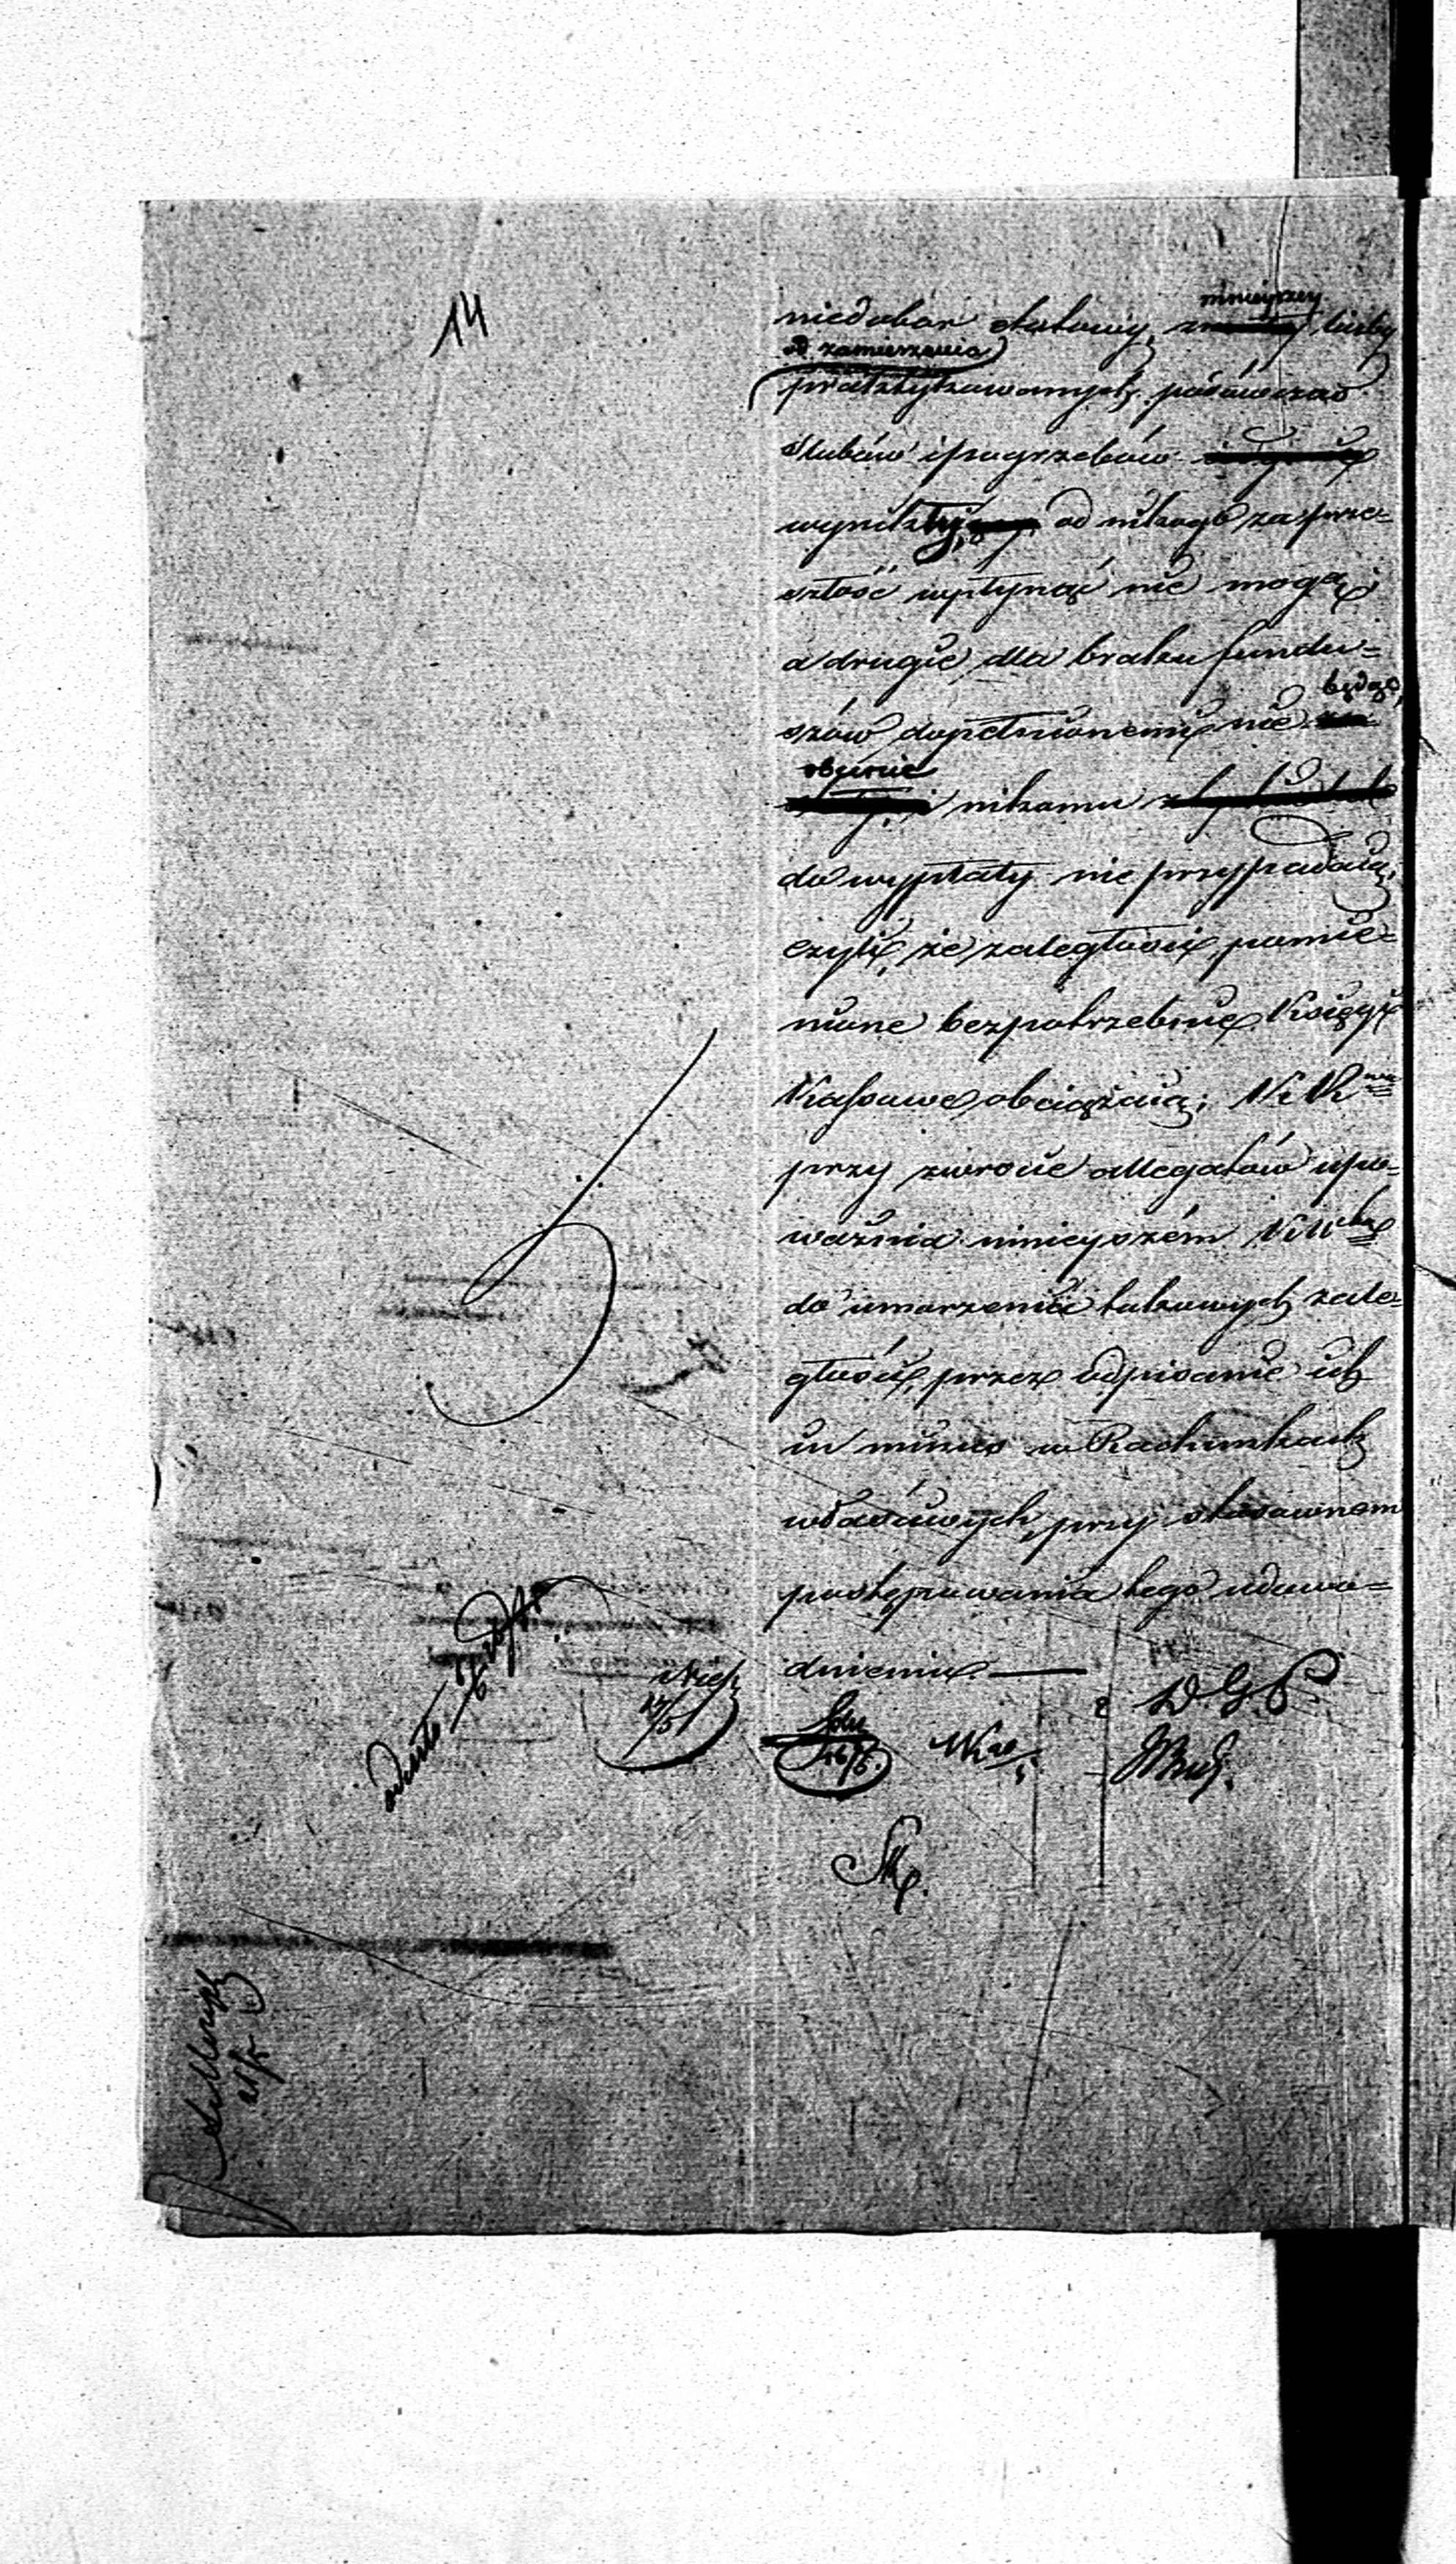 14
mnieyszey
niedobor etatowy, z liczby
od zamierzenia
praktykowanych podówczas
ślubów i pogrzebów
wynikły, od nikogo za prze-
szłość wpłynąć nie mogą,
a drugie, dla braku fundu-
będąc,
szów dopełnionemi nie
obecnie
nikomu
do wypłaty nie przypadaią,
czyli, że zaległości pomie-
nione bezpotrzebnie Księgi
Kassowe obciążaią; KR
przy zwrocie allegatów upo-
ważnia ninieyszém
do umorzenia takowych zale-
głości, przez odpisanie ich
in minus w Rachunkach
właściwych, przy stosownem
postępowania tego udowo-
dnieniu. —
D.G.P.